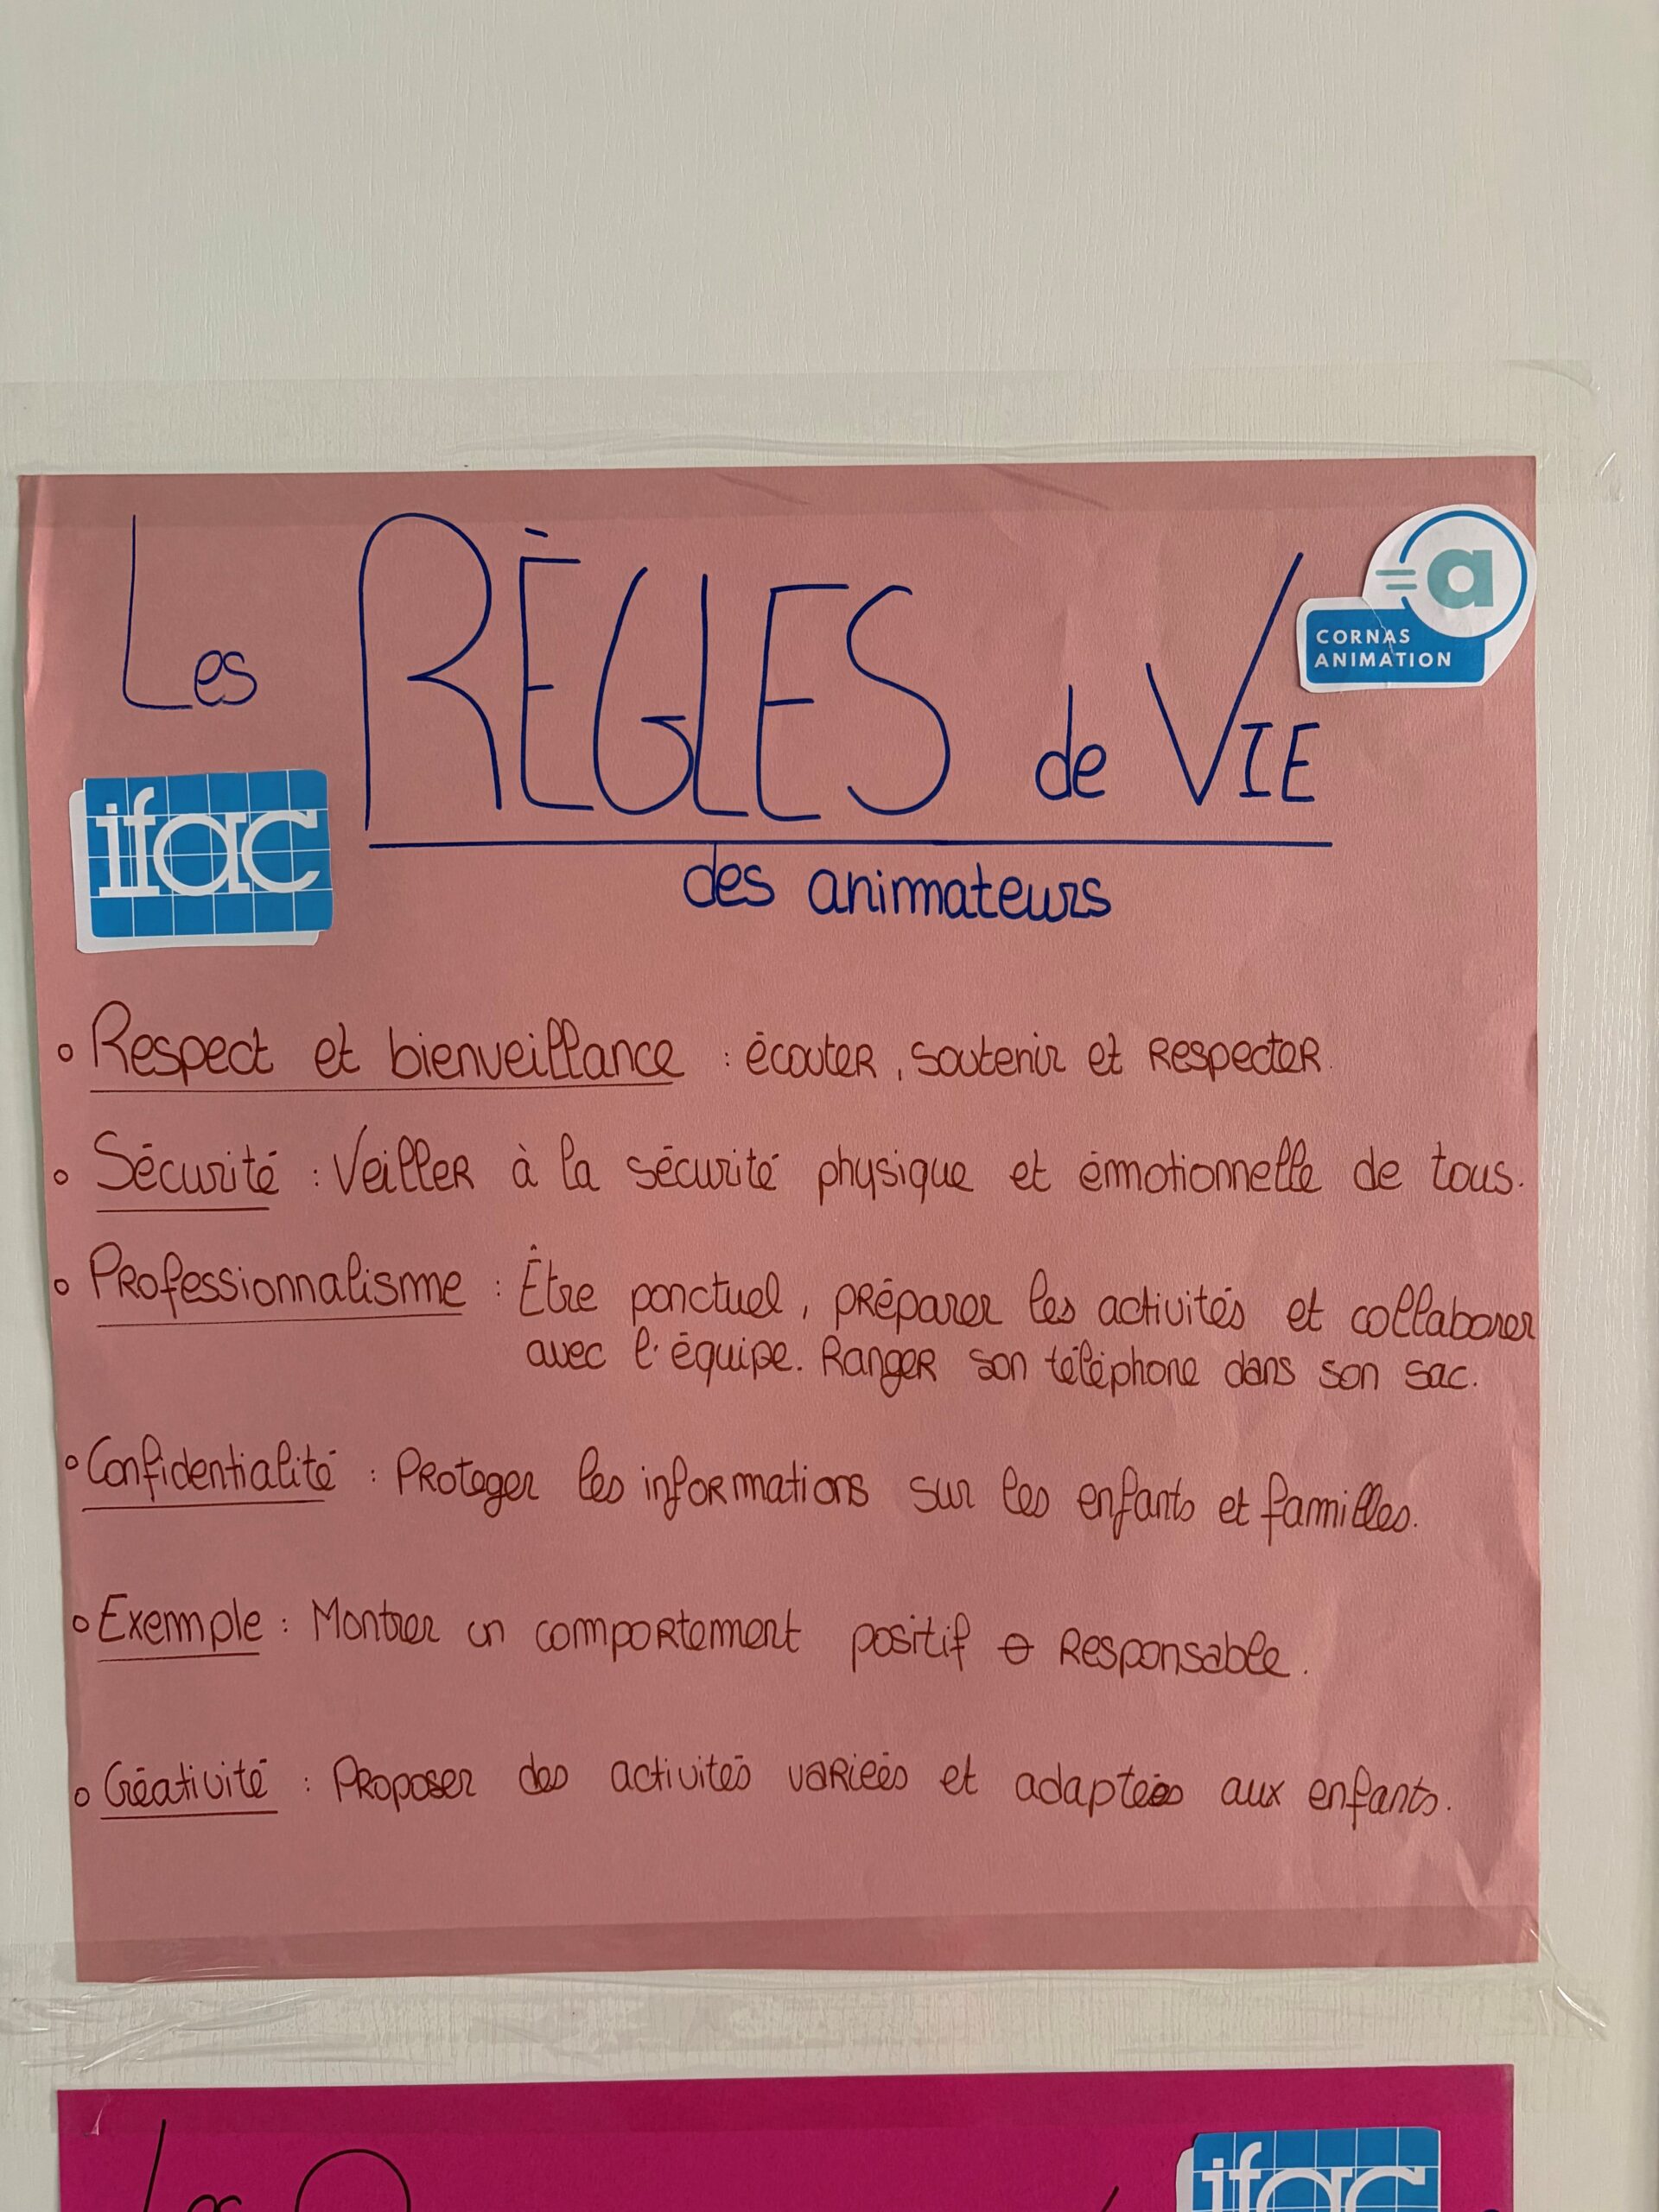 Les RÈGLES de VIE
a
CORNAS
ANIMATION
ifac
des animateurs
° Respect et bienveillance : écouter, soutenir et respecter.
° Sécurité : Veiller à la sécurité physique et émotionnelle de tous.
° Professionnalisme : Être ponctuel, préparer les activités et collaborer
avec l'équipe. Ranger son téléphone dans son sac.
° Confidentialité : Proteger les informations sur les enfants et familles.
° Exemple : Montrer un comportement positif Responsable.
° Créativité : Proposer des activités variées et adaptées aux enfants.
ifac